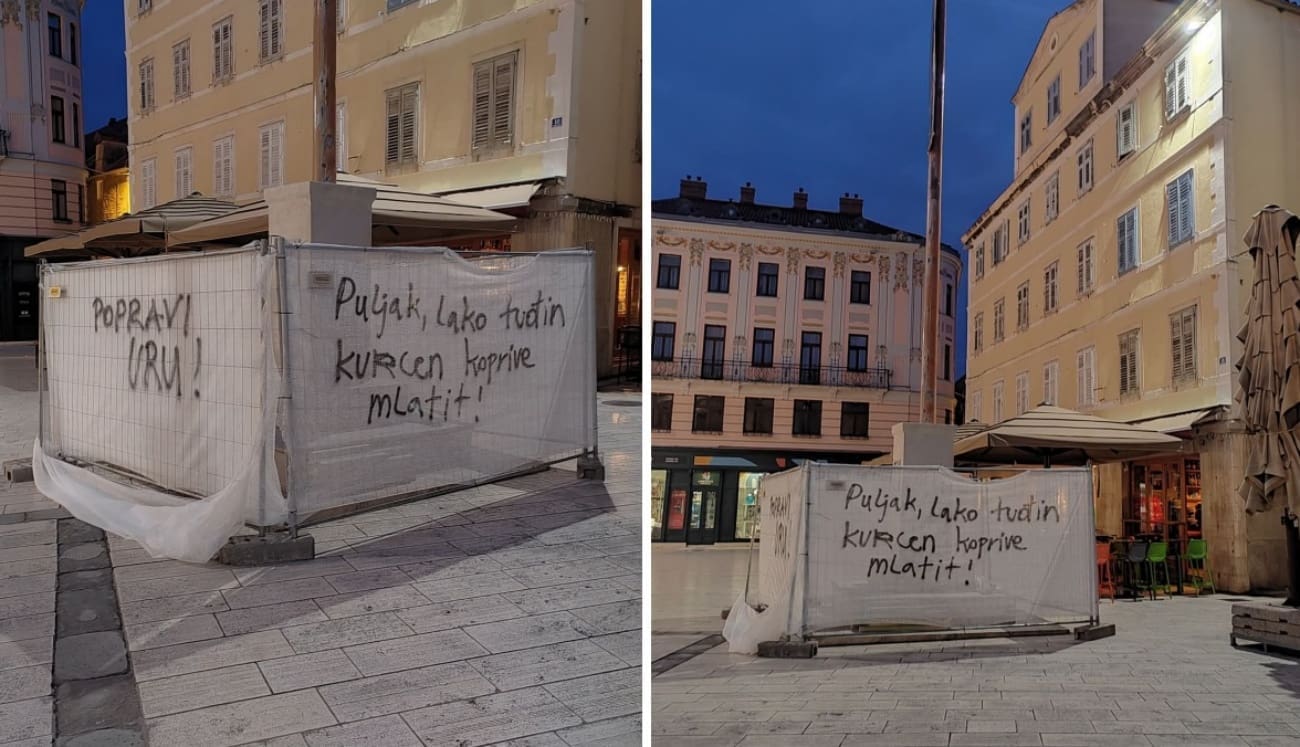 POPRAVI
URU!
Puljak, lako tuđin
kurcen koprive
mlatit!
POPRAVI
URU!
Puljak, lako tuđin
kurcen koprive
mlatit!